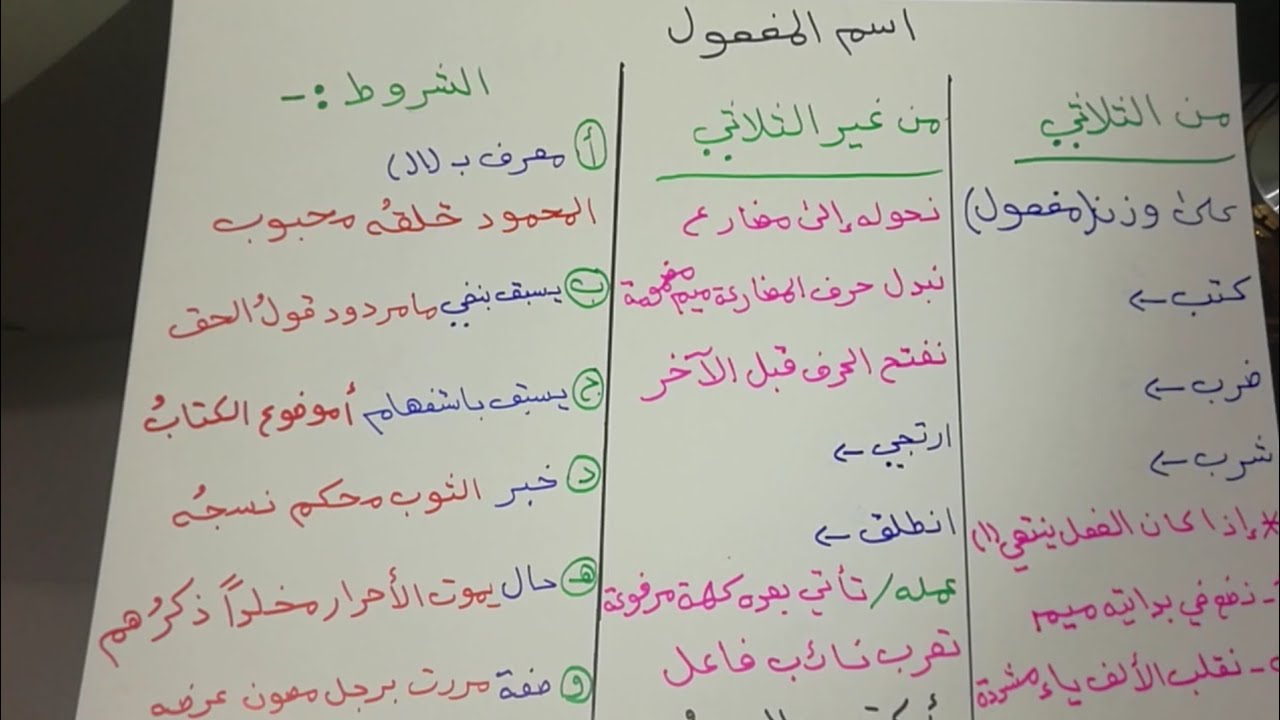 اسم المفعول
من الثلاثي
على وزن (مفعول)
كتب ←
ضرب ←
شرب ←
* إذا كان الفعل ينتهي (ا)
- نضع في بدايته ميم
- نقلب الألف ياء مشددة
من غير الثلاثي
نحوله إلى مضارع
نبدل حرف المضارعة ميم مضمومة
نفتح الحرف قبل الآخر
ارتجي ←
انطلق ←
عمله / تأتي بعده كلمة مرفوعة
تعرب نائب فاعل
الشروط :-
أ معرف بـ (ال)
المحمود خلقهُ محبوب
ب يسبق بنفي ما مردود قولُ الحق
ج يسبق باستفهام أموضوع الكتابُ
د خبر الثوب محكم نسجُه
هـ حال يموت الأحرار مخلداً ذكرُهم
و صفة مررت برجل مصون عرضه